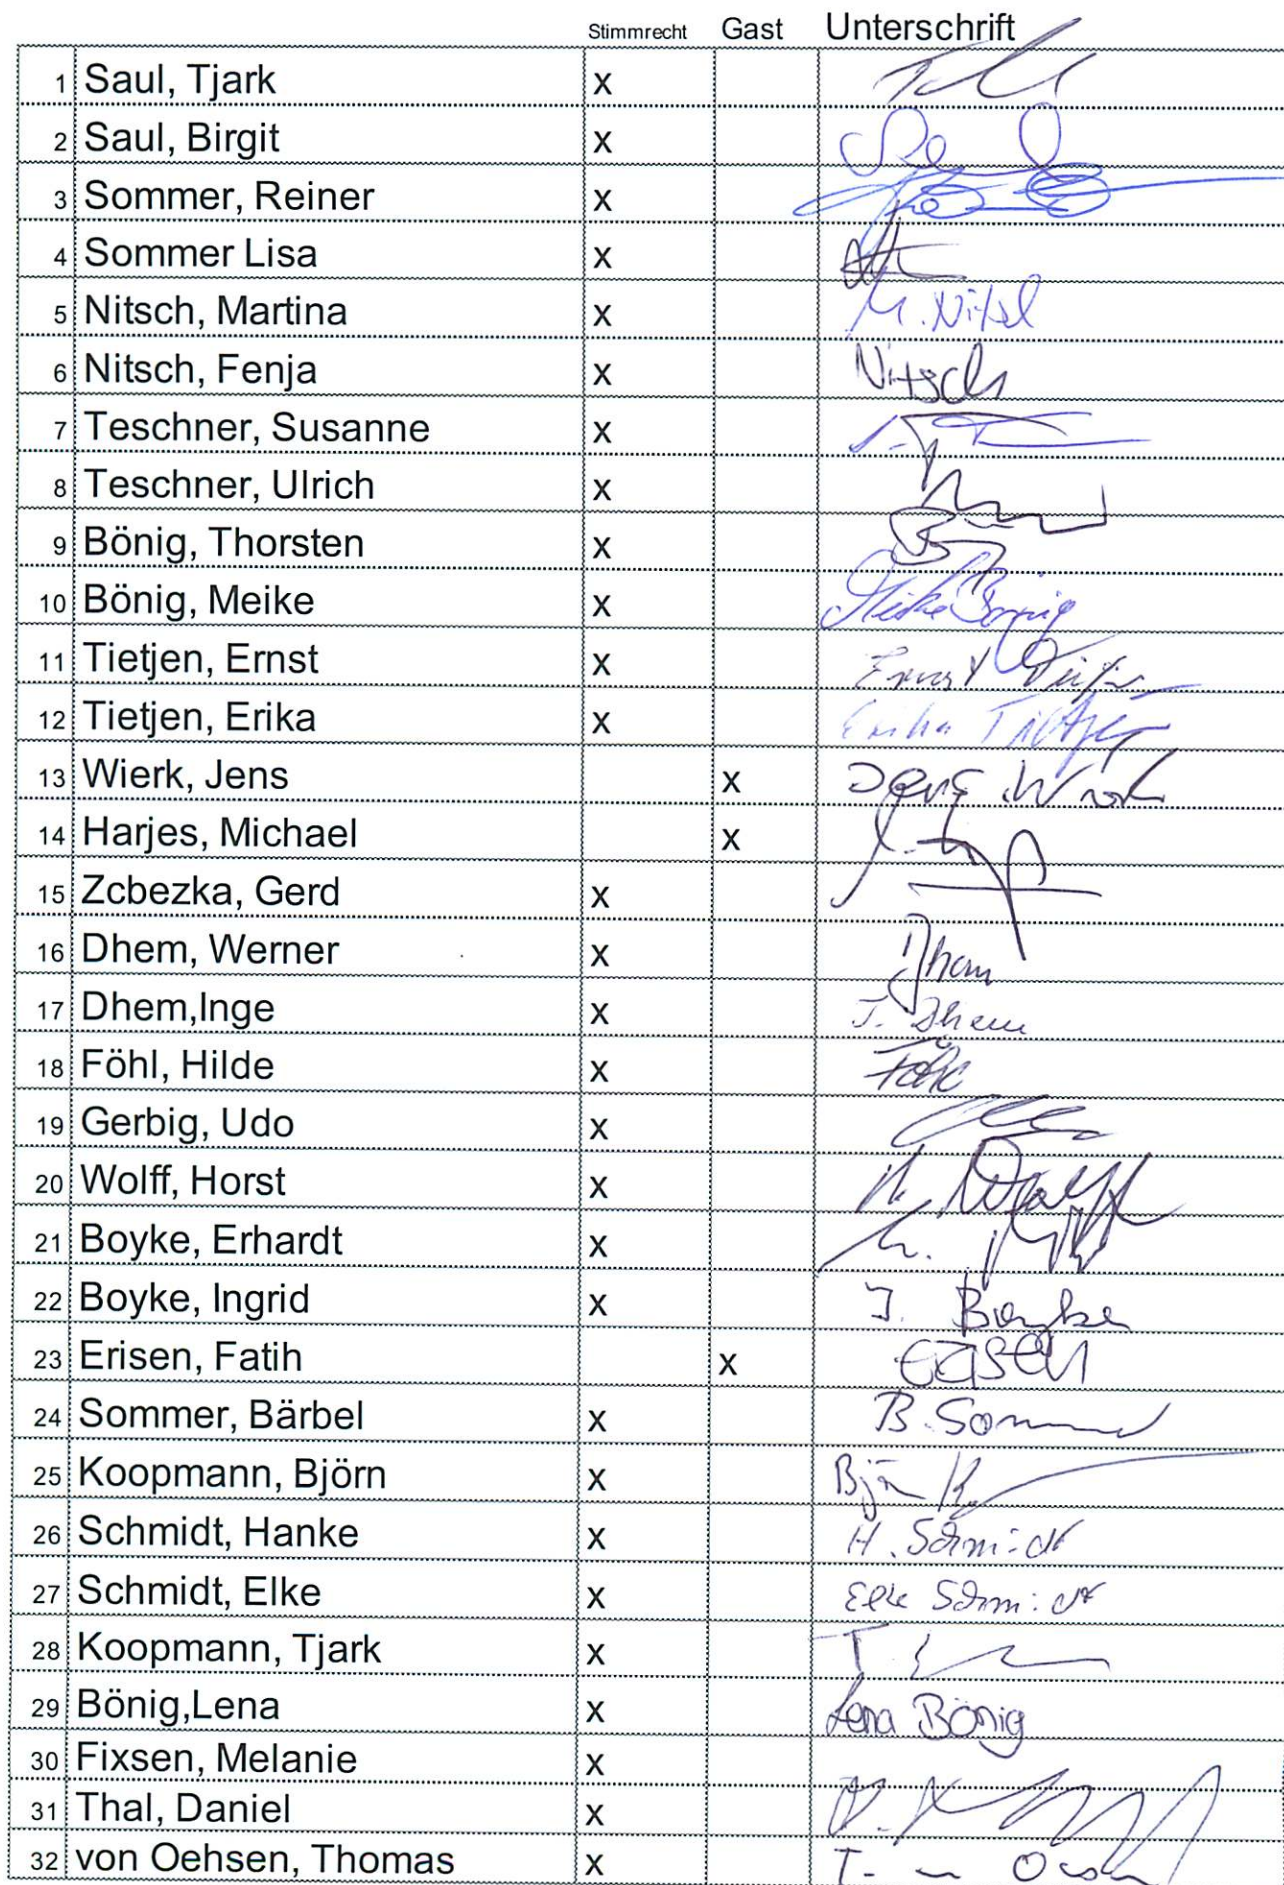 Stimmrecht Gast Unterschrift
1 Saul, Tjark x
2 Saul, Birgit x
3 Sommer, Reiner x
4 Sommer Lisa x
5 Nitsch, Martina x M. Nitsch
6 Nitsch, Fenja x Nitsch
7 Teschner, Susanne x
8 Teschner, Ulrich x
9 Bönig, Thorsten x
10 Bönig, Meike x Meike Bönig
11 Tietjen, Ernst x Ernst Tietjen
12 Tietjen, Erika x Erika Tietjen
13 Wierk, Jens x Jens Wierk
14 Harjes, Michael x
15 Zcbezka, Gerd x
16 Dhem, Werner x Dhem
17 Dhem,Inge x I. Dhem
18 Föhl, Hilde x Föhl
19 Gerbig, Udo x
20 Wolff, Horst x H. Wolff
21 Boyke, Erhardt x
22 Boyke, Ingrid x I. Boyke
23 Erisen, Fatih x ERISEN
24 Sommer, Bärbel x B. Sommer
25 Koopmann, Björn x Björn
26 Schmidt, Hanke x H. Schmidt
27 Schmidt, Elke x Elke Schmidt
28 Koopmann, Tjark x T.
29 Bönig,Lena x Lena Bönig
30 Fixsen, Melanie x
31 Thal, Daniel x
32 von Oehsen, Thomas x